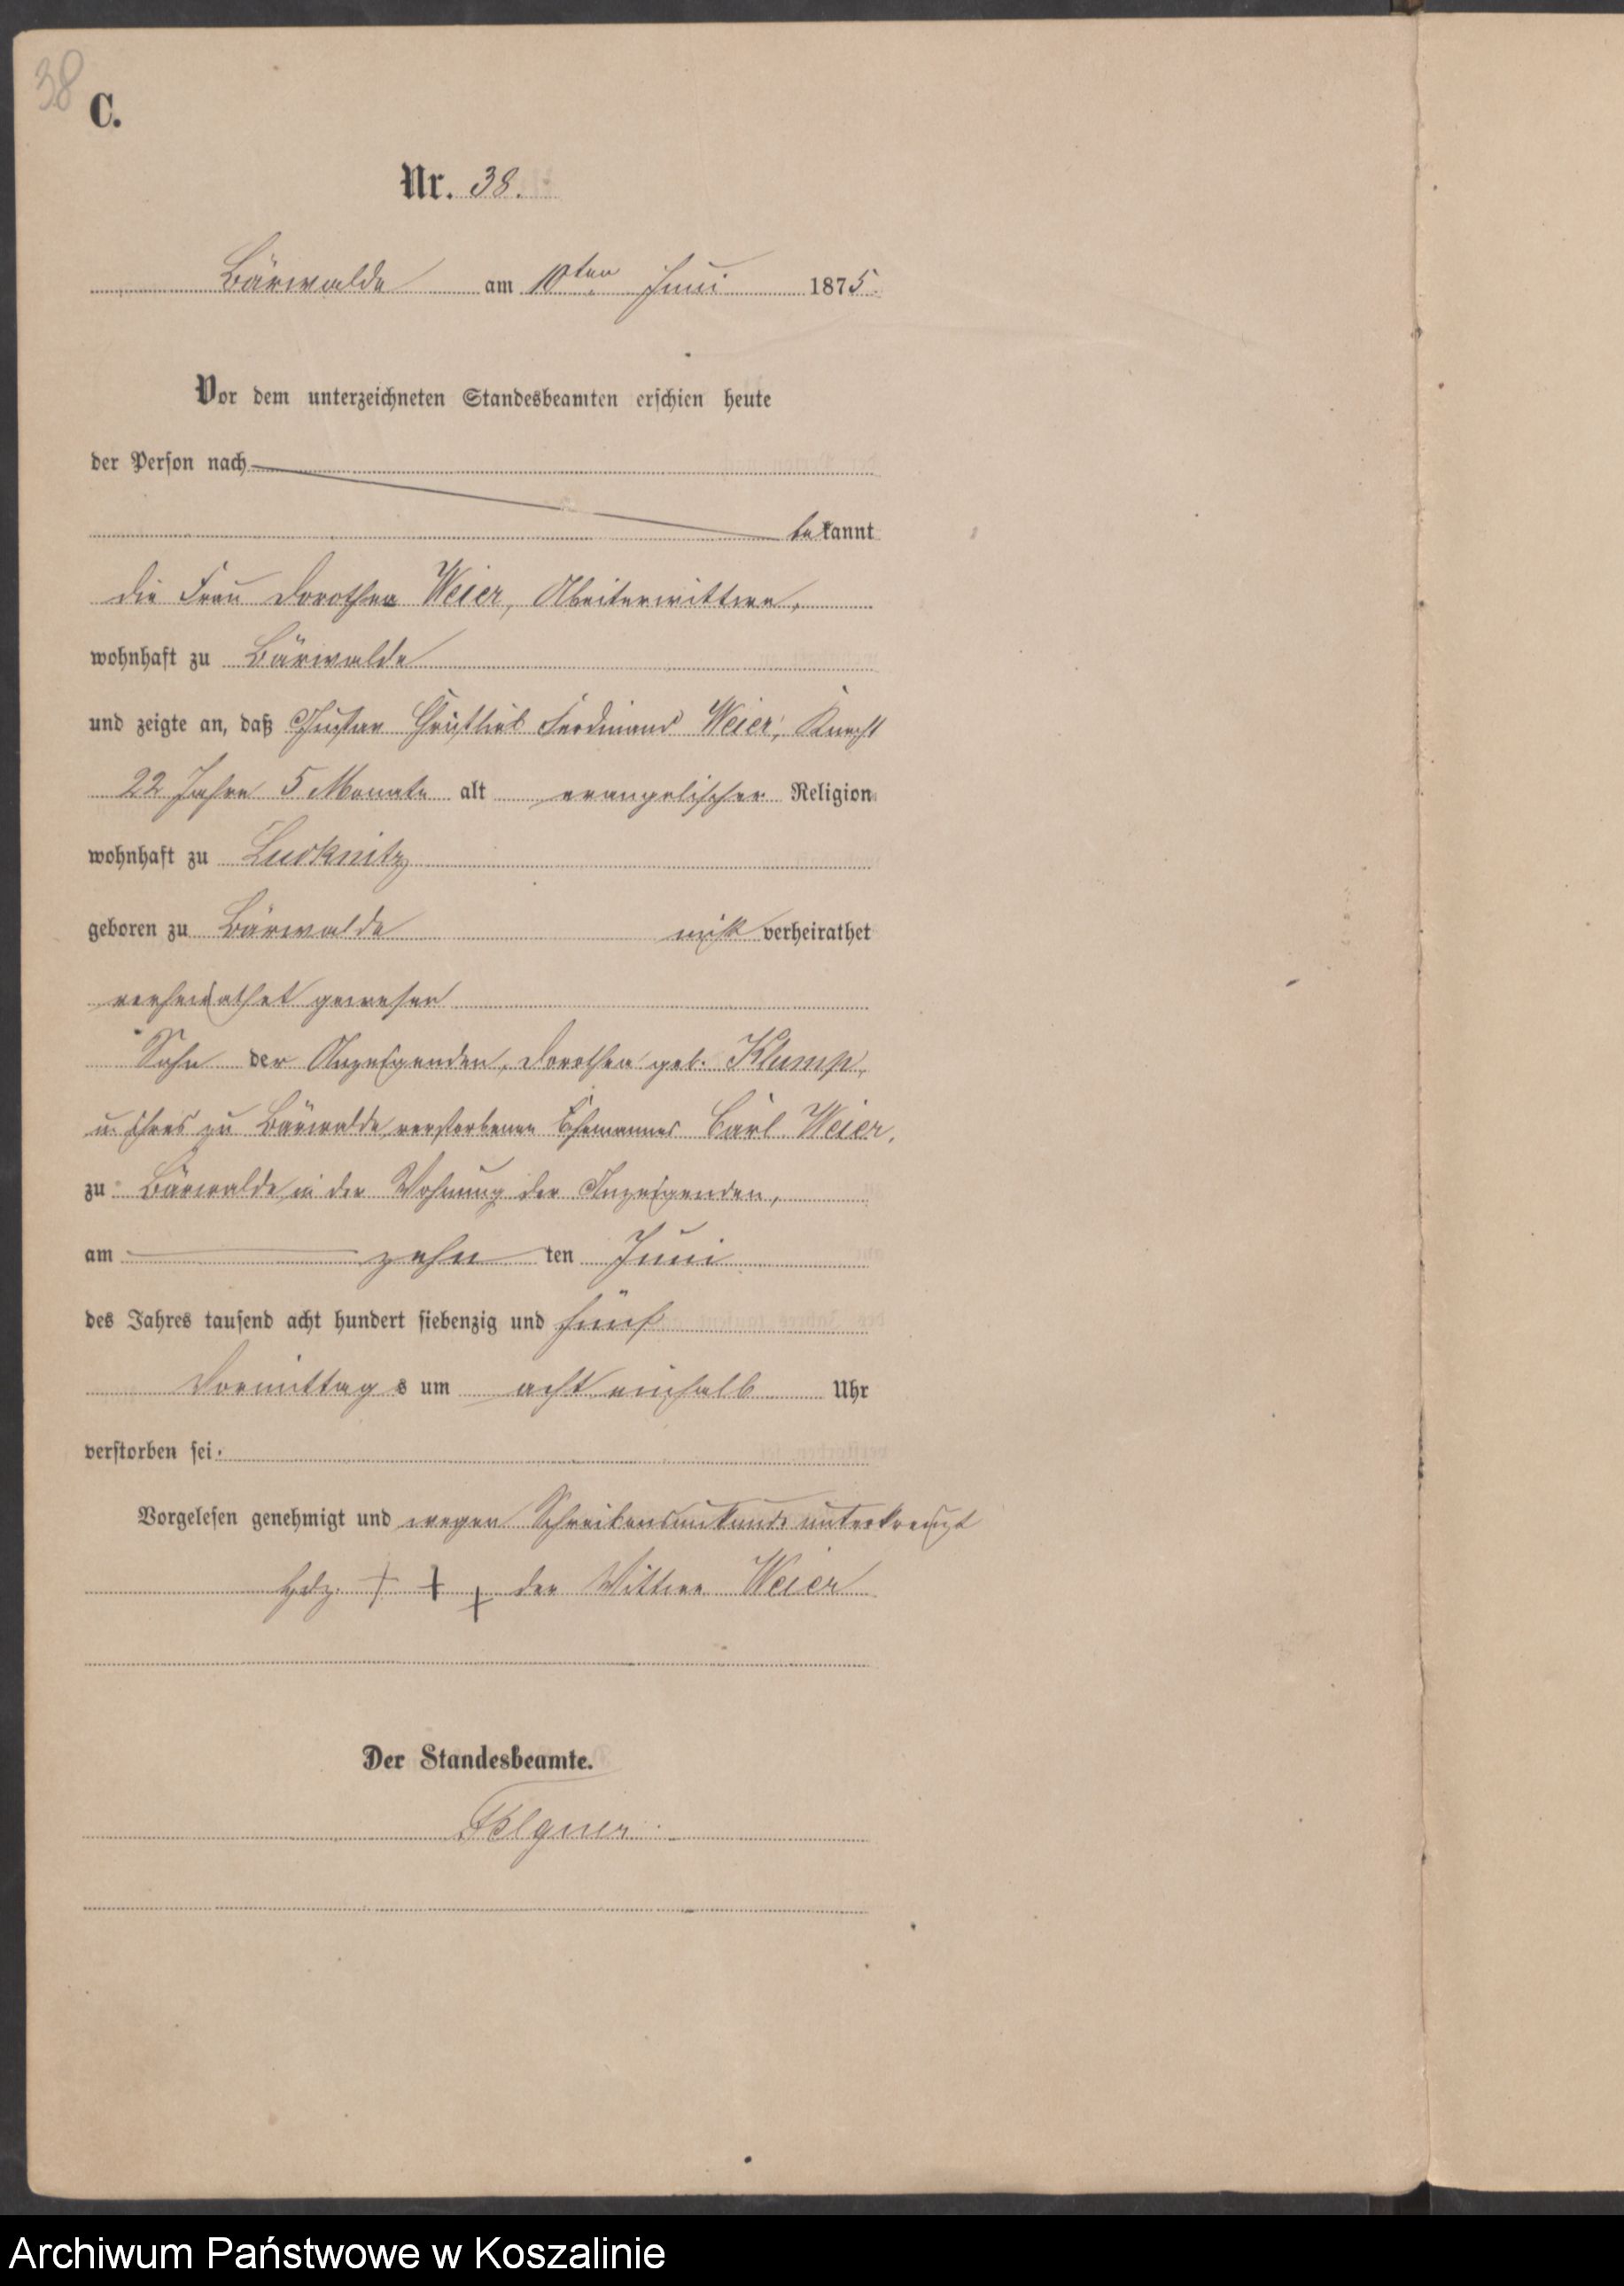 38
C.
Nr. 38.
Bärwalde am 10ten Juni 1875.
Vor dem unterzeichneten Standesbeamten erschien heute
der Person nach
bekannt
die Frau Dorothea Weier, Arbeiterwittwe,
wohnhaft zu Bärwalde
und zeigte an, daß Gustav Christlieb Ferdinand Weier, Knecht
22 Jahre 5 Monate alt evangelischer Religion
wohnhaft zu Lucknitz
geboren zu Bärwalde nicht verheirathet
verheirathet gewesen
Sohn der Anzeigenden, Dorothea geb. Klump,
u. ihres zu Bärwalde verstorbenen Ehemannes Carl Weier,
zu Bärwalde in der Wohnung der Anzeigenden,
am zehn ten Juni
des Jahres tausend acht hundert siebenzig und fünf
Vormittag s um acht einhalb Uhr
verstorben sei.
Vorgelesen genehmigt und wegen Schreibensunkunde unterkreuzt
Hdz. + + + der Wittwe Weier
Der Standesbeamte.
Felgner.
Archiwum Państwowe w Koszalinie